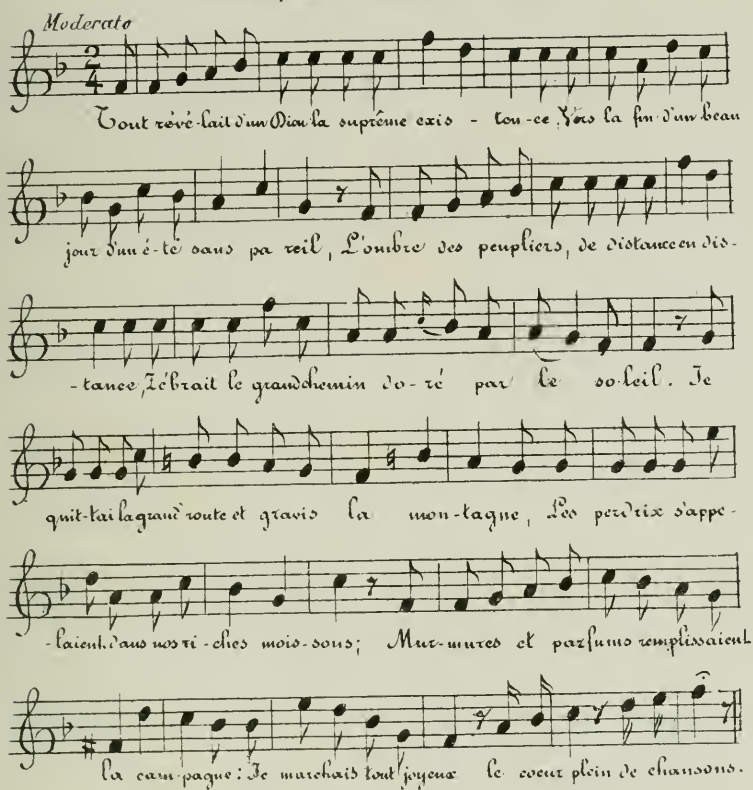 Moderato
2
4
Tout révé-lait d'un Dieu la suprême exis - ten-ce, Vers la fin d'un beau
jour d'un é-té sans pa reil, L'ombre des peupliers, de distance en dis-
-tance, Zébrait le grand chemin do-ré par le so-leil. Je
quit-tai la grand' route et gravis la mon-tagne, Les perdrix s'appe-
-laient dans nos ri-ches mois-sons; Mur-mures et parfums remplissaient
la cam-pagne: Je marchais tout joyeux le coeur plein de chansons.